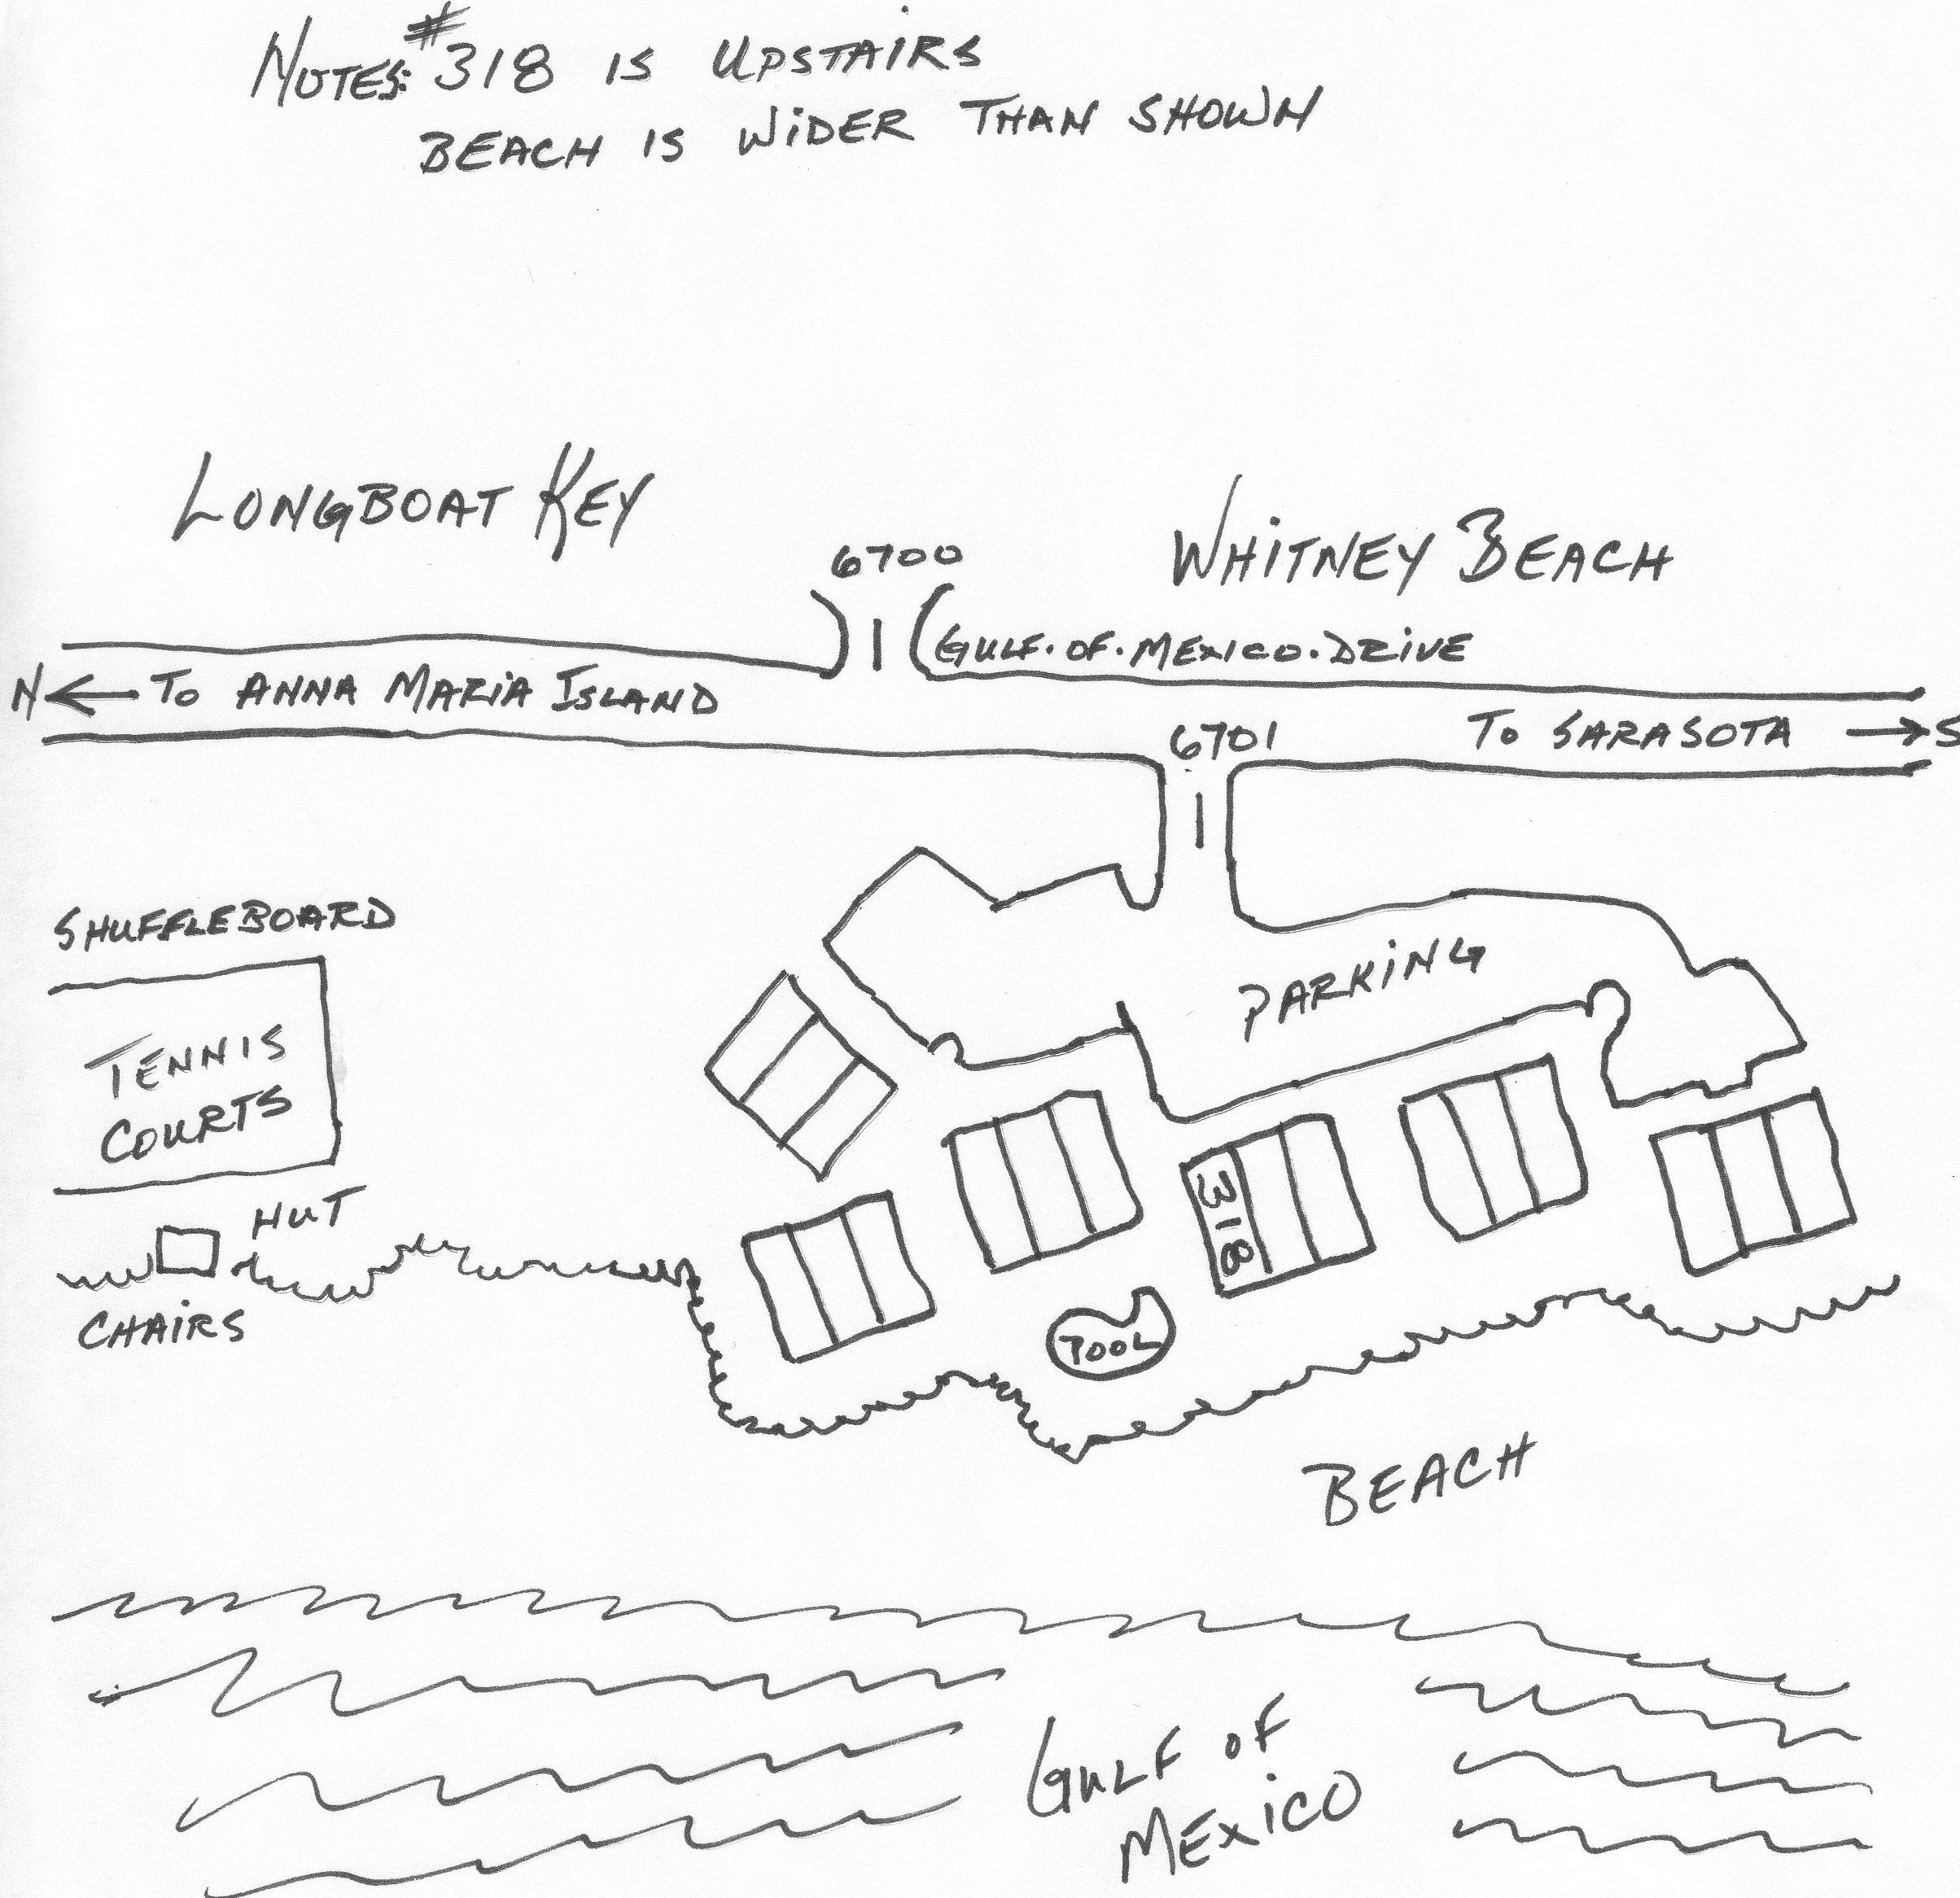 NOTES: #318 IS UPSTAIRS
BEACH IS WIDER THAN SHOWN
LONGBOAT KEY
WHITNEY BEACH
6700
GULF·OF·MEXICO·DRIVE
N ← TO ANNA MARIA ISLAND
6701
TO SARASOTA → S
SHUFFLEBOARD
PARKING
TENNIS
COURTS
318
HUT
CHAIRS
POOL
BEACH
GULF OF
MEXICO